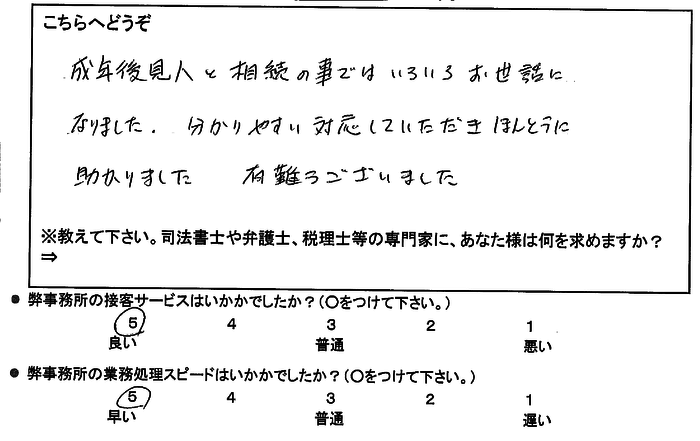 こちらへどうぞ
成年後見人と相続の事ではいろいろお世話に
なりました. 分かりやすい対応していただきほんとうに
助かりました 有難うございました
※教えて下さい。司法書士や弁護士、税理士等の専門家に、あなた様は何を求めますか?
⇒
● 弊事務所の接客サービスはいかかでしたか?(〇をつけて下さい。)
5 4 3 2 1
良い 普通 悪い
● 弊事務所の業務処理スピードはいかかでしたか?(〇をつけて下さい。)
5 4 3 2 1
早い 普通 遅い